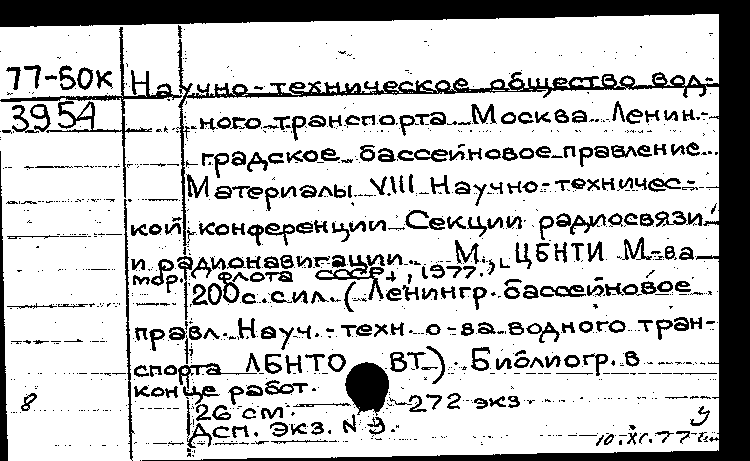 77-50к Научно-техническое общество вод-
3954 ного транспорта. Москва. Ленин-
градское бассейновое правление.
Материалы VIII Научно-техничес-
кой конференции Секции радиосвязи
и радионавигации. М., ЦБНТИ М-ва
мор. флота СССР, 1977.
200с. с ил. (Ленингр. бассейновое
правл. Науч.-техн. о-ва водного тран-
спорта ЛБНТО ВТ). Библиогр. в
конце работ.
8 26 см. 272 экз
Дсп. Экз. N 9.
10.XI.77